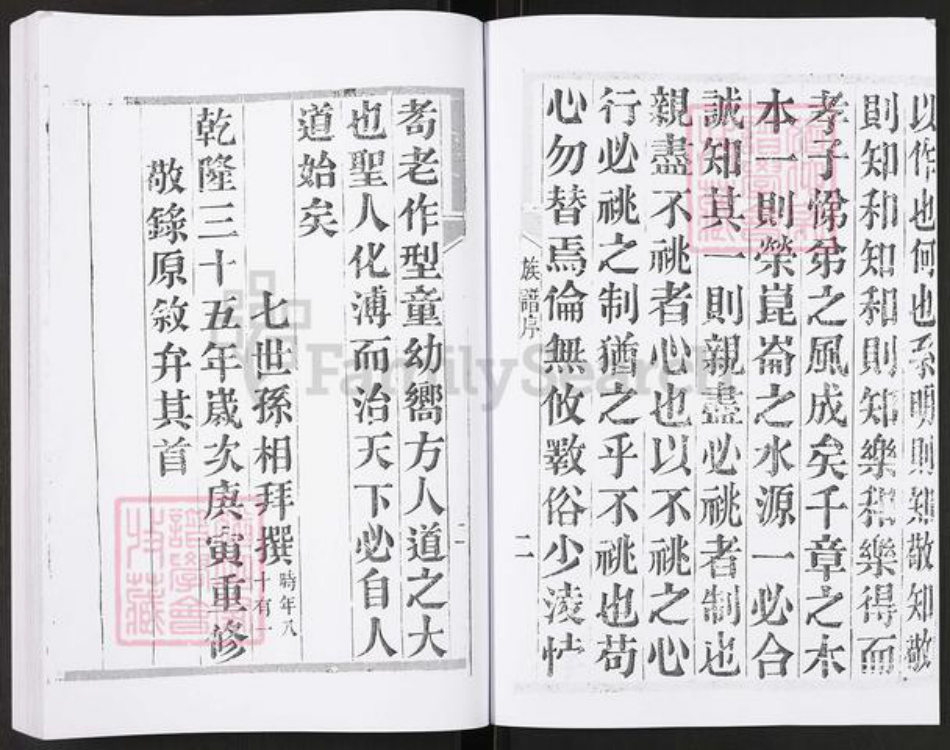 以作也何也系明則知敬知敬
則知和知和則知樂和樂得而
孝子悌弟之風成矣千章之木
本一則榮崑崙之水源一必合
誠知其一則親盡必祧者制也
親盡不祧者心也以不祧之心
行必祧之制猶之乎不祧也苟
心勿替焉倫無攸斁俗少淩怯
族譜序
二
耈老作型童幼嚮方人道之大
也聖人化溥而治天下必自人
道始矣
七世孫相拜撰時年八十有一
乾隆三十五年歲次庚寅重修
敬錄原敘弁其首
FamilySearch
譜學會
收藏